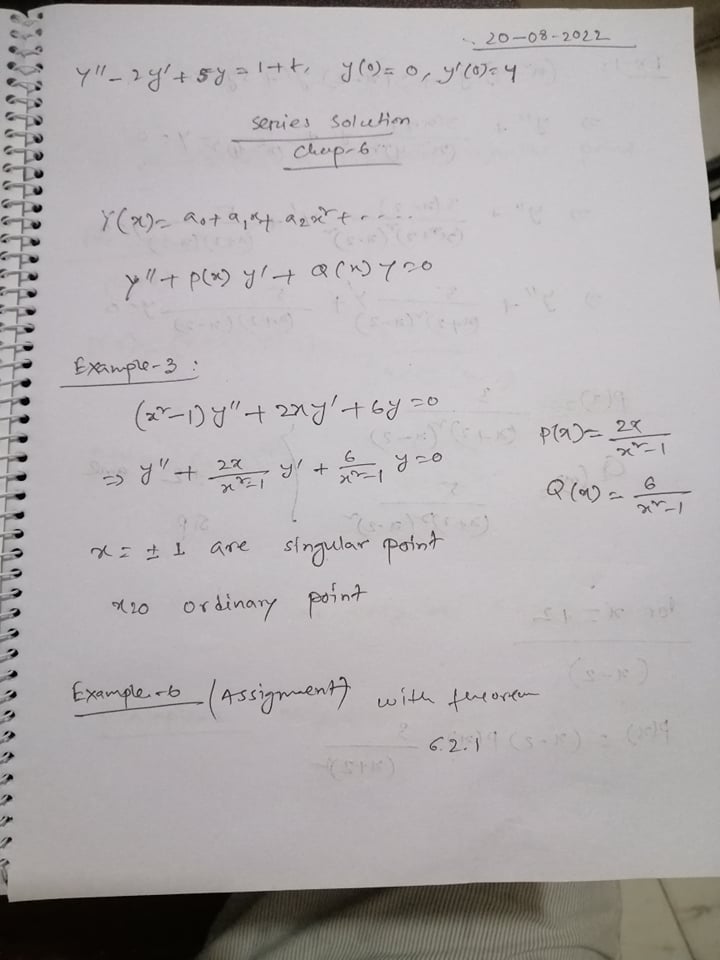 20-08-2022
y'' - 2y' + 5y = 1+t, y(0) = 0, y'(0) = 4
Series Solution
Chap-6
Y(x) = a₀ + a₁x + a₂x² + .....
y'' + P(x) y' + Q(x) y = 0
Example-3 :
(x²-1) y'' + 2xy' + 6y = 0
⇒ y'' + 2x/(x²-1) y' + 6/(x²-1) y = 0
P(x) = 2x/(x²-1)
Q(x) = 6/(x²-1)
x = ± 1 are singular point
x=0 ordinary point
Example-6 (Assignment) with theorem
6.2.1